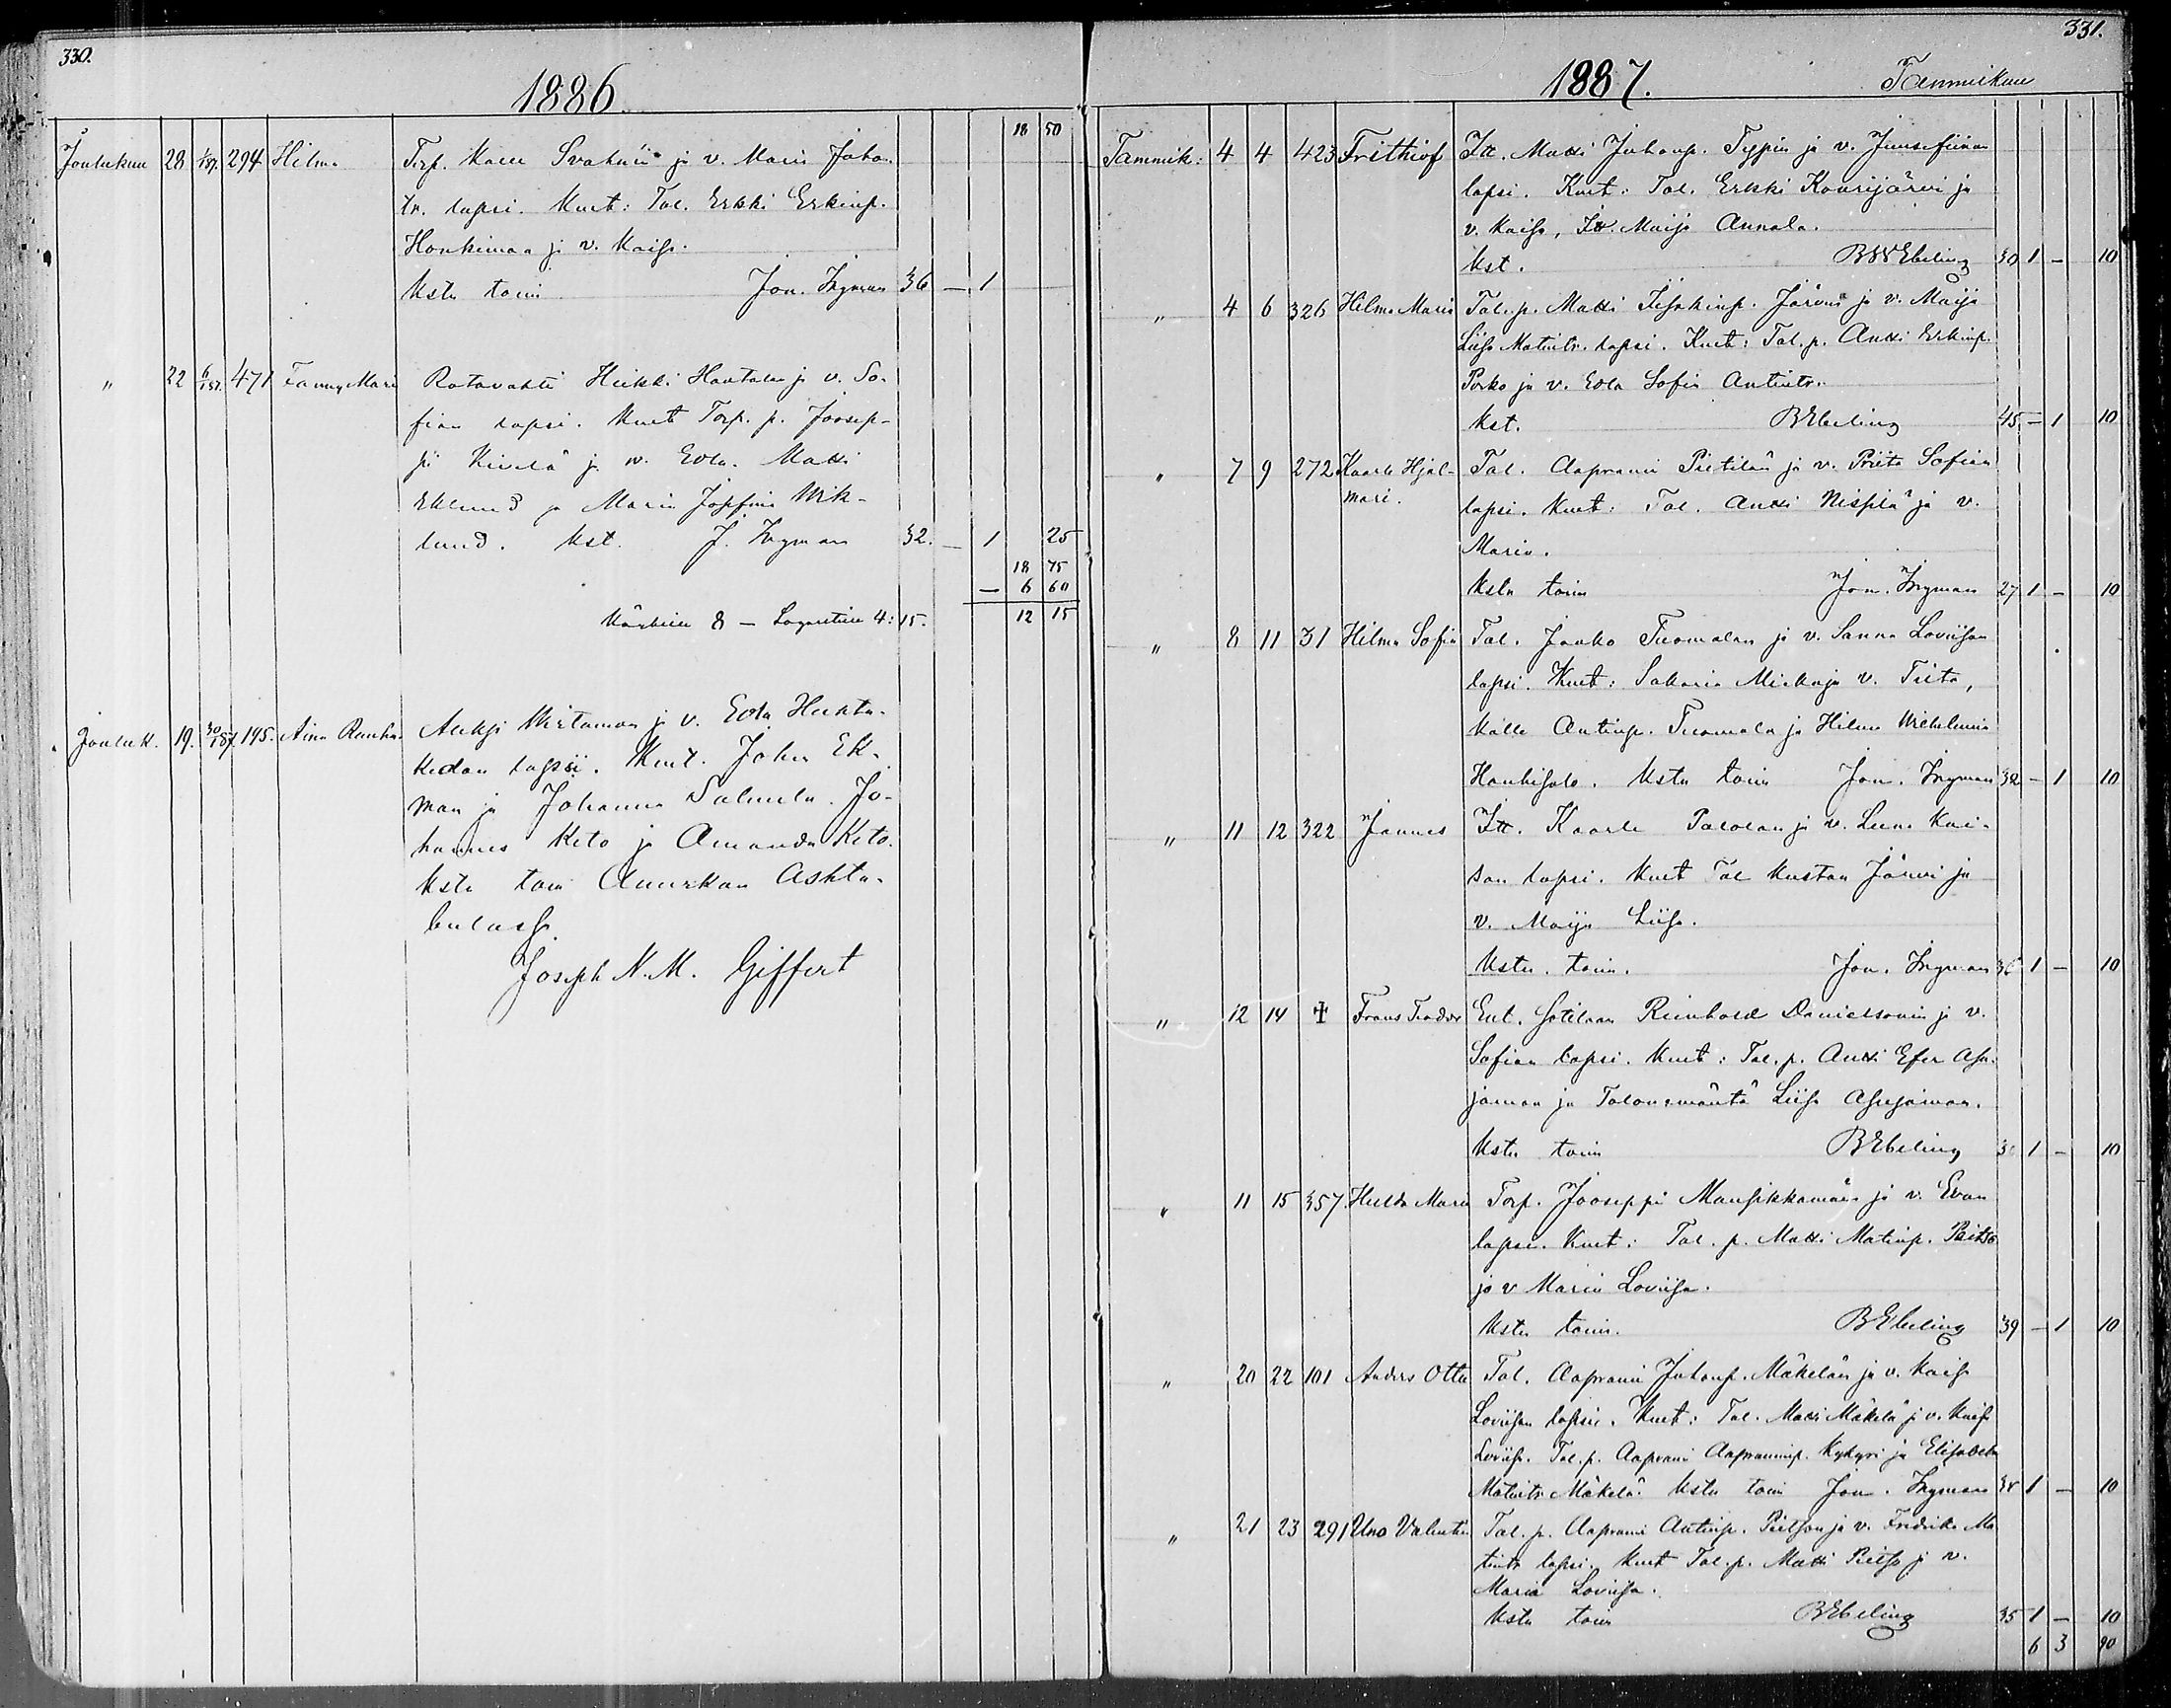 330.
1886.
18 50
Joulukuu 28 1/187. 294 Hilma Torp. Kalle Svahnin ja v. Maria Joha.
tr. lapsi. Kust: Tal. Erkki Erkinp.
Honkimaa ja v. Kaisa.
Ksti toim Jon. Ingman 36 — 1
" 22 6/187. 471 Fanny Maria Ratavahti Heikki Hautalan ja v. So-
fian lapsi. Kust Torp. p. Joosep-
pi Kivelä ja v. Eva. Matti
Eklund ja Maria Josefina Wik-
lund. Kst. J. Ingman 32. — 1 25
18 75
— 6 60
8 — 4: 15. 12 15
Jouluk. 19. 30/187. 195. Aina Rauha. Aleksi Wirtaman ja v. Eva
kedan lapsi. Kust. John Ek-
man ja Johanna Salmela. Jo-
hannes Keto ja Amanda Keto.
Ksti toim Amerikan Ashta-
bulassa
Joseph N. M. Giffert
331.
1887. Tammikuu
Tammik: 4 4 423 Frithiof Itt. Matti Juhonp. Typin ja v. Juusefiinan
lapsi. Kust: Tal. Erkki Kourijärvi ja
v. Kaisa, Itt. Maija Annala.
Kst. B W Ebeling 30 1 — 10
" 4 6 326 Hilma Maria Tal. p. Matti Iisakinp. Järven ja v. Maija
Liisa Matintr. lapsi. Kust: Tal. p. Antti Erkinp.
Porko ja v. Eva Sofia Antintr.
Kst. B Ebeling 45 — 1 10
" 7 9 272 Kaarle Hjal- Tal. Aaprami Pietilän ja v. Priita Sofian
mari. lapsi. Kust: Tal. Antti Nispilä ja v.
Maria.
Ksti toim Jon. Ingman 27 1 — 10
" 8 11 31 Hilma Sofia Tal. Jaako Tuomalan ja v. Sanna Loviisan
lapsi. Kust: Sakaria Micka ja v. Tiita,
Kalle Antinp. Tuomala ja Hilma Wilhelmina
Hankisalo. Ksti toim Jon. Ingman 32 — 1 10
" 11 12 322 Jannes Itt. Kaarle Palolan ja v. Leena Kai-
san lapsi. Kust Tal Kustaa Järvi ja
v. Maija Liisa.
Ksti. toim. Jon. Ingman 36 1 — 10
" 12 14 ‡ Frans Teodor Ent. Sotilaan Reinhold Danielssonin ja v.
Sofian lapsi. Kust: Tal. p. Antti Efr. Asu-
jamaa ja Talonemäntä Liisa Asujamaa.
Ksti toim B Ebeling 1 — 10
" 11 15 357. Hulda Maria Torp. Jooseppi Mansikkamäen ja v. Evan
lapsi. Kust: Tal. p. Matti Matinp. Peitso
ja v Maria Loviisa.
Ksti toim. B Ebeling 39 — 1 10
" 20 22 101 Anders Otto Tal. Aaprami Juhonp. Mäkelän ja v. Kaisa
Loviisan lapsi. Kust: Tal. Matti Mäkelä ja v. Kaisa
Loviisa. Tal. p. Aaprami Aapraminp. Kykyri ja Elisabeta
Matintr. Mäkelä. Ksti toim Jon. Ingman 34 1 — 10
" 21 23 291 Uno Valentin Tal. p. Aaprami Antinp. Peitson ja v. Fredrika Ma
tintr lapsi. Kust Tal. p. Matti Peitso ja v.
Maria Loviisa.
Ksti toim B Ebeling 35 1 — 10
6 3 90